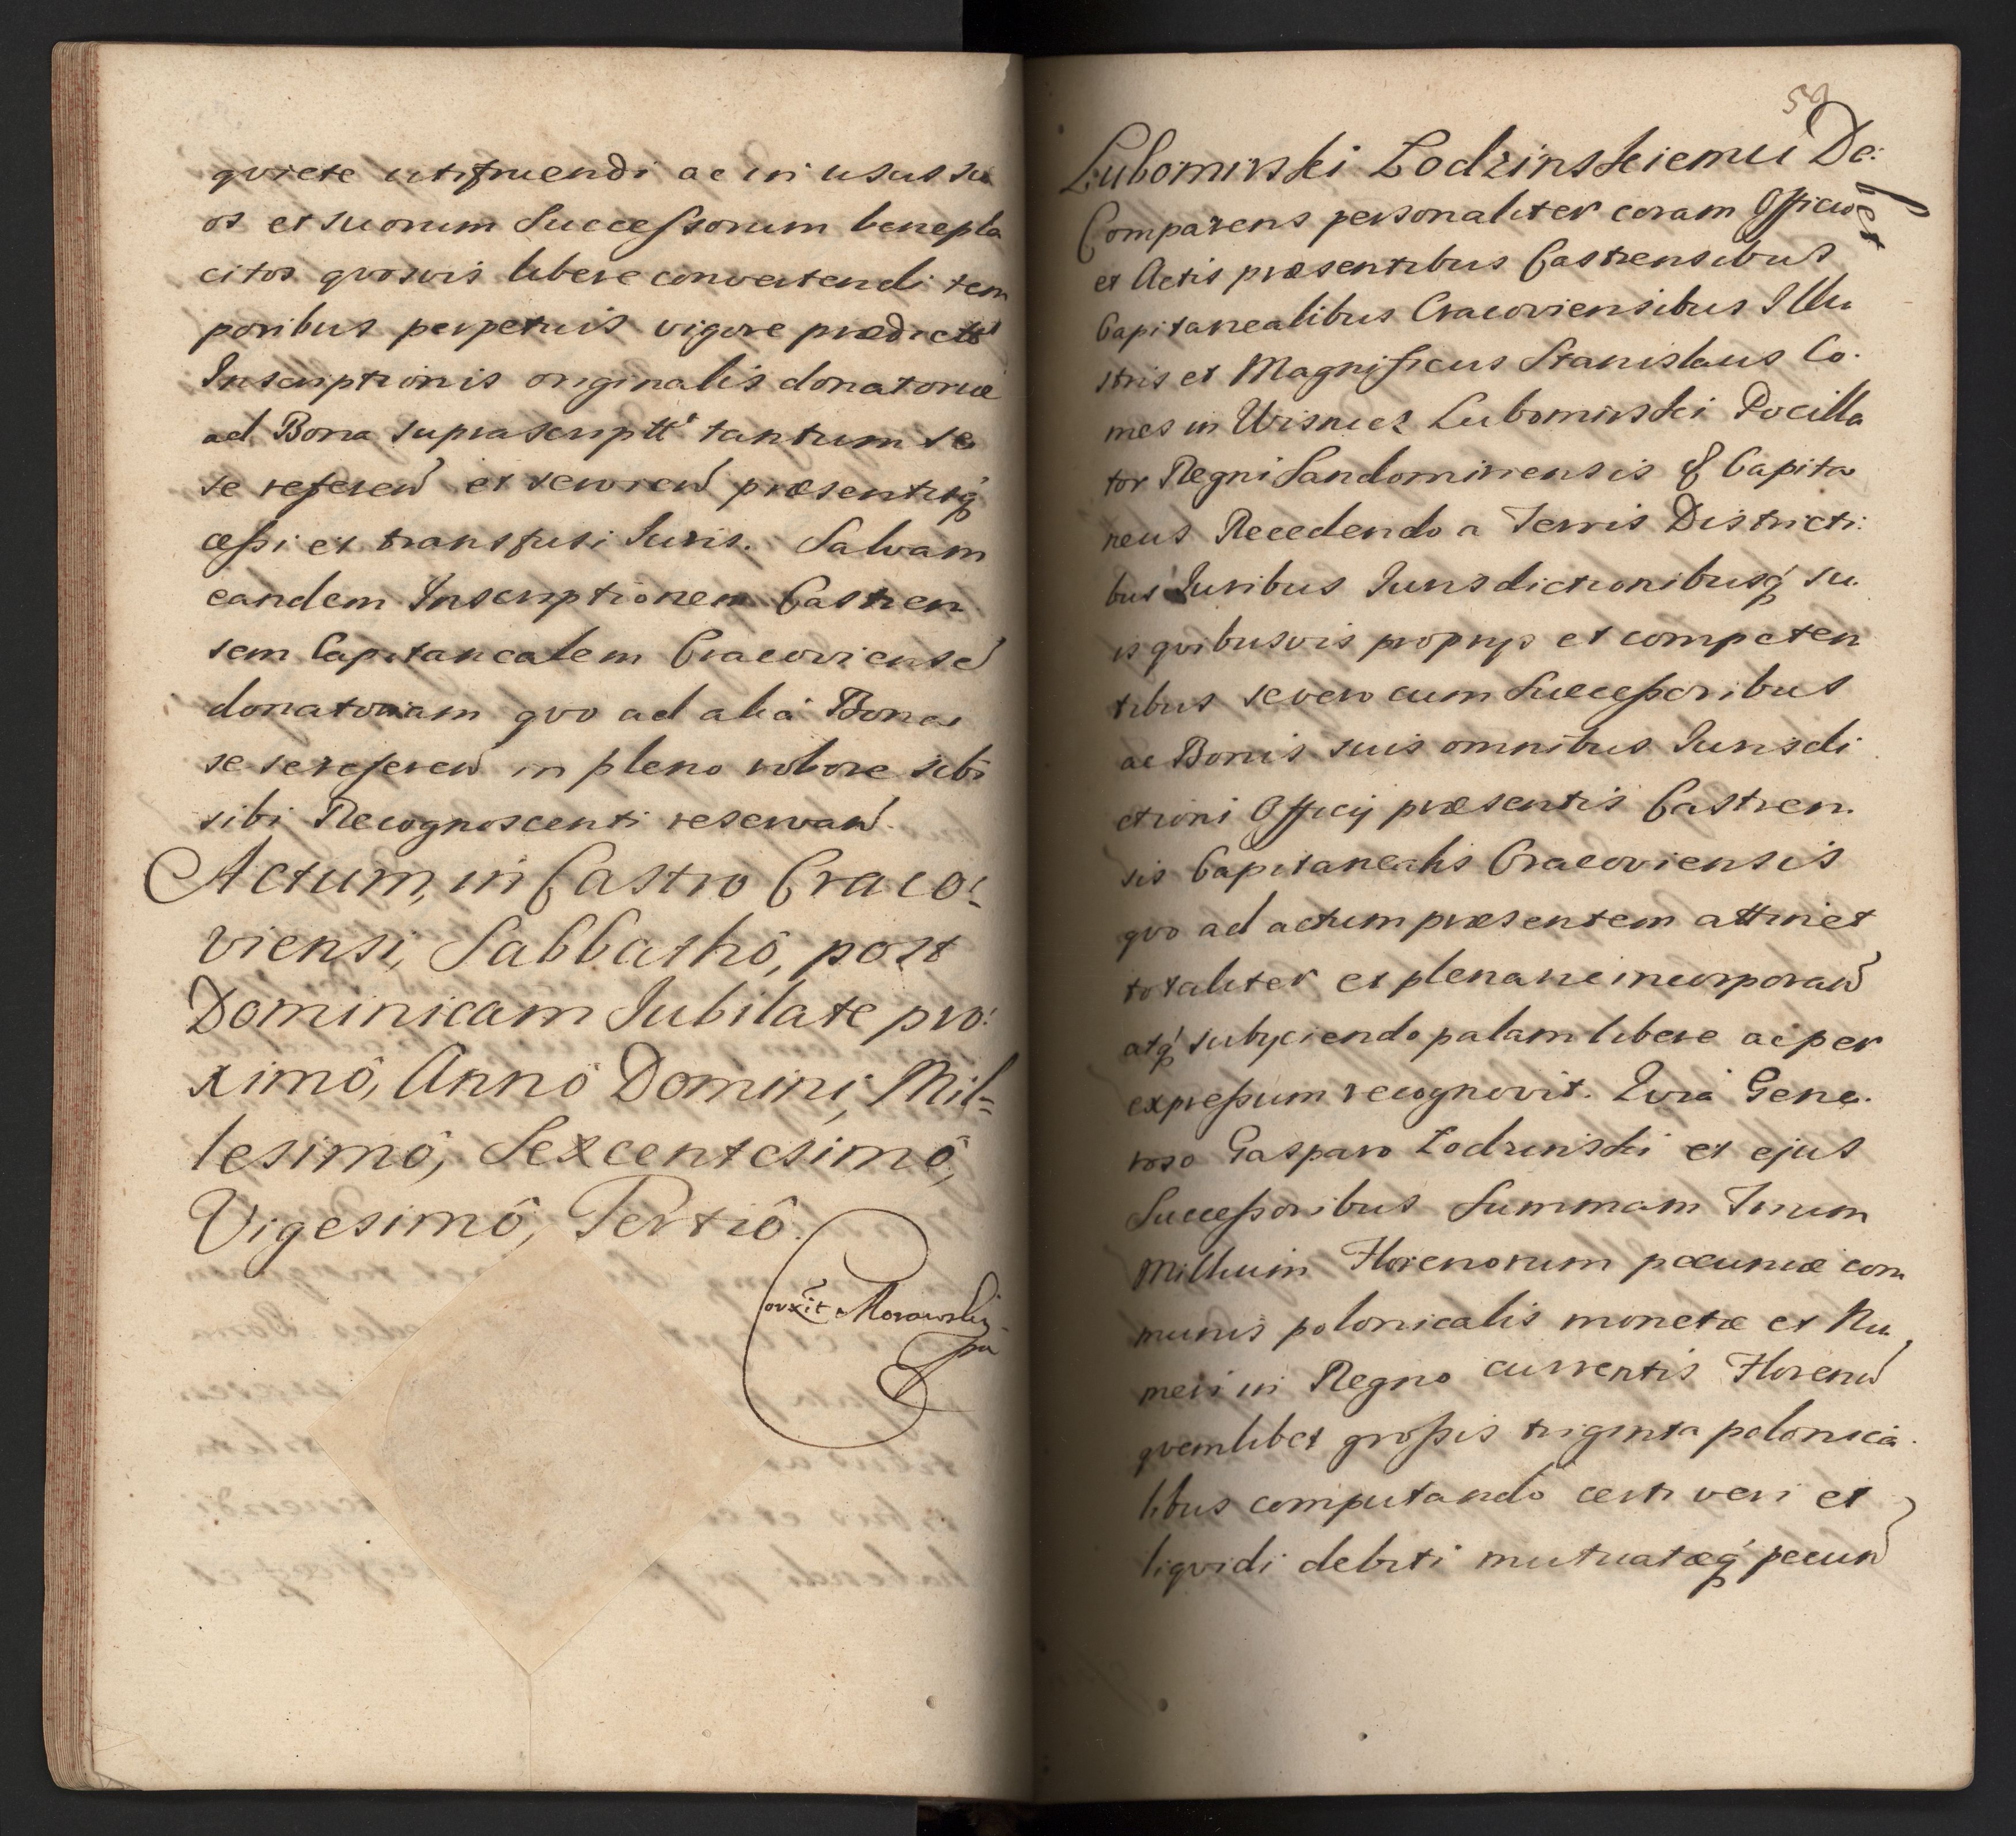 qviete utifruendi ac in usus su
os et suorum Successorum benepla
citos qvosvis libere convertendi tem
poribus perpetuis vigore prædictæ
Inscriptionis originalis donatoriæ
ad Bona suprascriptt tantum se
se referen et servien præsentisq
cessi et transfusi Iuris. Salvam
eandem Inscriptionem Castren
sem Capitanealem Cracoviense
donatoriam qvo ad alia Bona
se se referen in pleno robore sibi
sibi Recognoscenti reservan.
Actum, in Castro Craco:
viensi, Sabbathô, post
Dominicam Iubilate pro:
ximô, Annô Domini, Mil=
lesimô, Sexcentesimô,
Vigesimô, Tertiô.
Corrxit Morawsky
59
Lubomirski Lodzinskiemu De:
bet
Comparens personaliter coram Officio
et Actis præsentibus Castrensibus
Capitanealibus Cracoviensibus Illu
stris et Magnificus Stanislaus Co.
mes in Wisnicz Lubomirski Pocilla
tor Regni Sandomiriensis & Capita
neus Recedendo a Terris Districti:
bus Iuribus Iurisdictionibusq su
is qvibusvis proprys et competen
tibus se vero cum Successoribus
ac Bonis suis omnibus Iurisdi
ctioni Officy præsentis Castren.
sis Capitanealis Cracoviensis
qvo ad actum præsentem attinet
totaliter et plenarie incorporan
atq subyciendo palam libere ac per
expressum recognovit. Qvia Gene.
roso Gasparo Lodzinski et ejus
Successoribus Summam Trium
Millium Florenorum pecuniæ com
munis polonicalis monetæ et Nu
meri in Regno currentis Floren
qvemlibet grossis triginta polonica
libus computando certi veri et
liqvidi debiti mutuatæq pecun